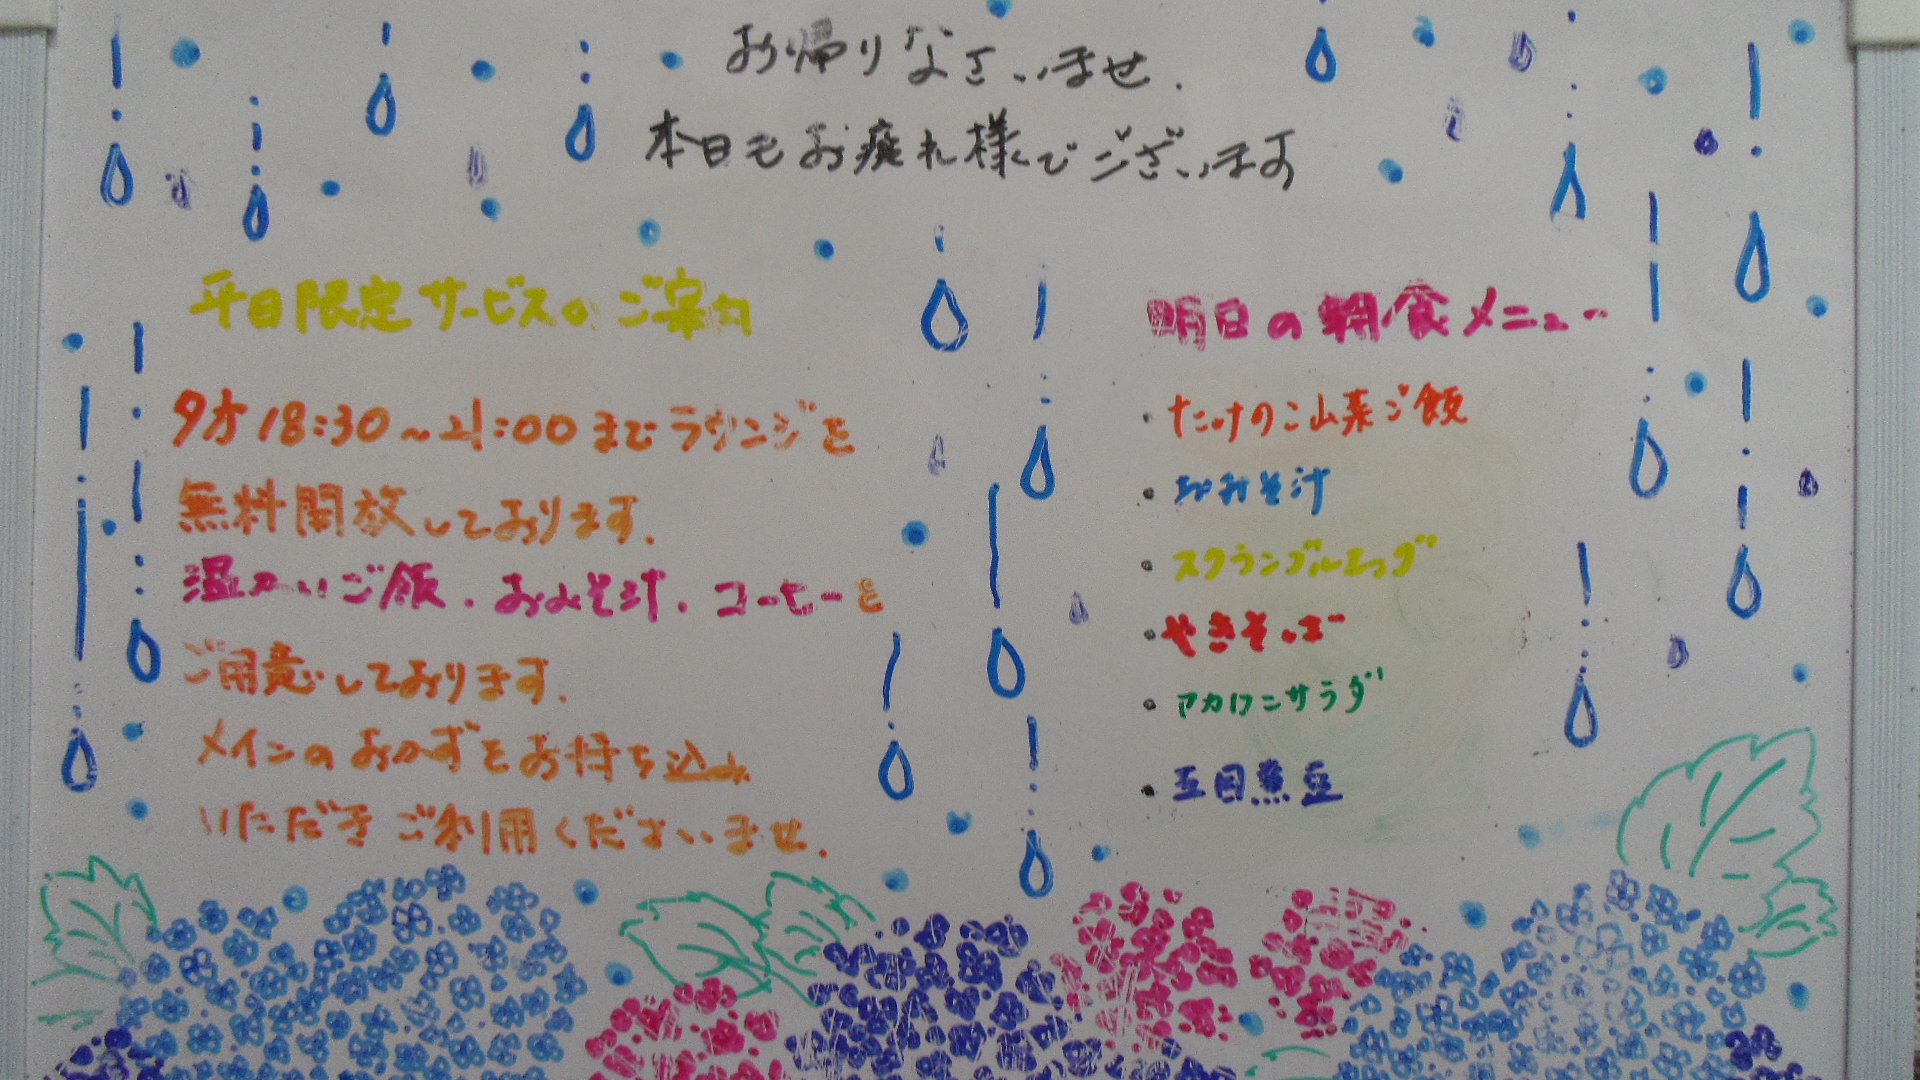 お帰りなさいませ.
本日もお疲れ様でございます
平日限定サービスのご案内
夕方18:30～21:00までラウンジを
無料開放しております.
温かいご飯.おみそ汁.コーヒーを
ご用意しております.
メインのおかずをお持ち込み
いただきご利用くださいませ.
明日の朝食メニュー
・たけのこ山菜ご飯
・おみそ汁
・スクランブルエッグ
・やきそば
・マカロニサラダ
・五目煮豆